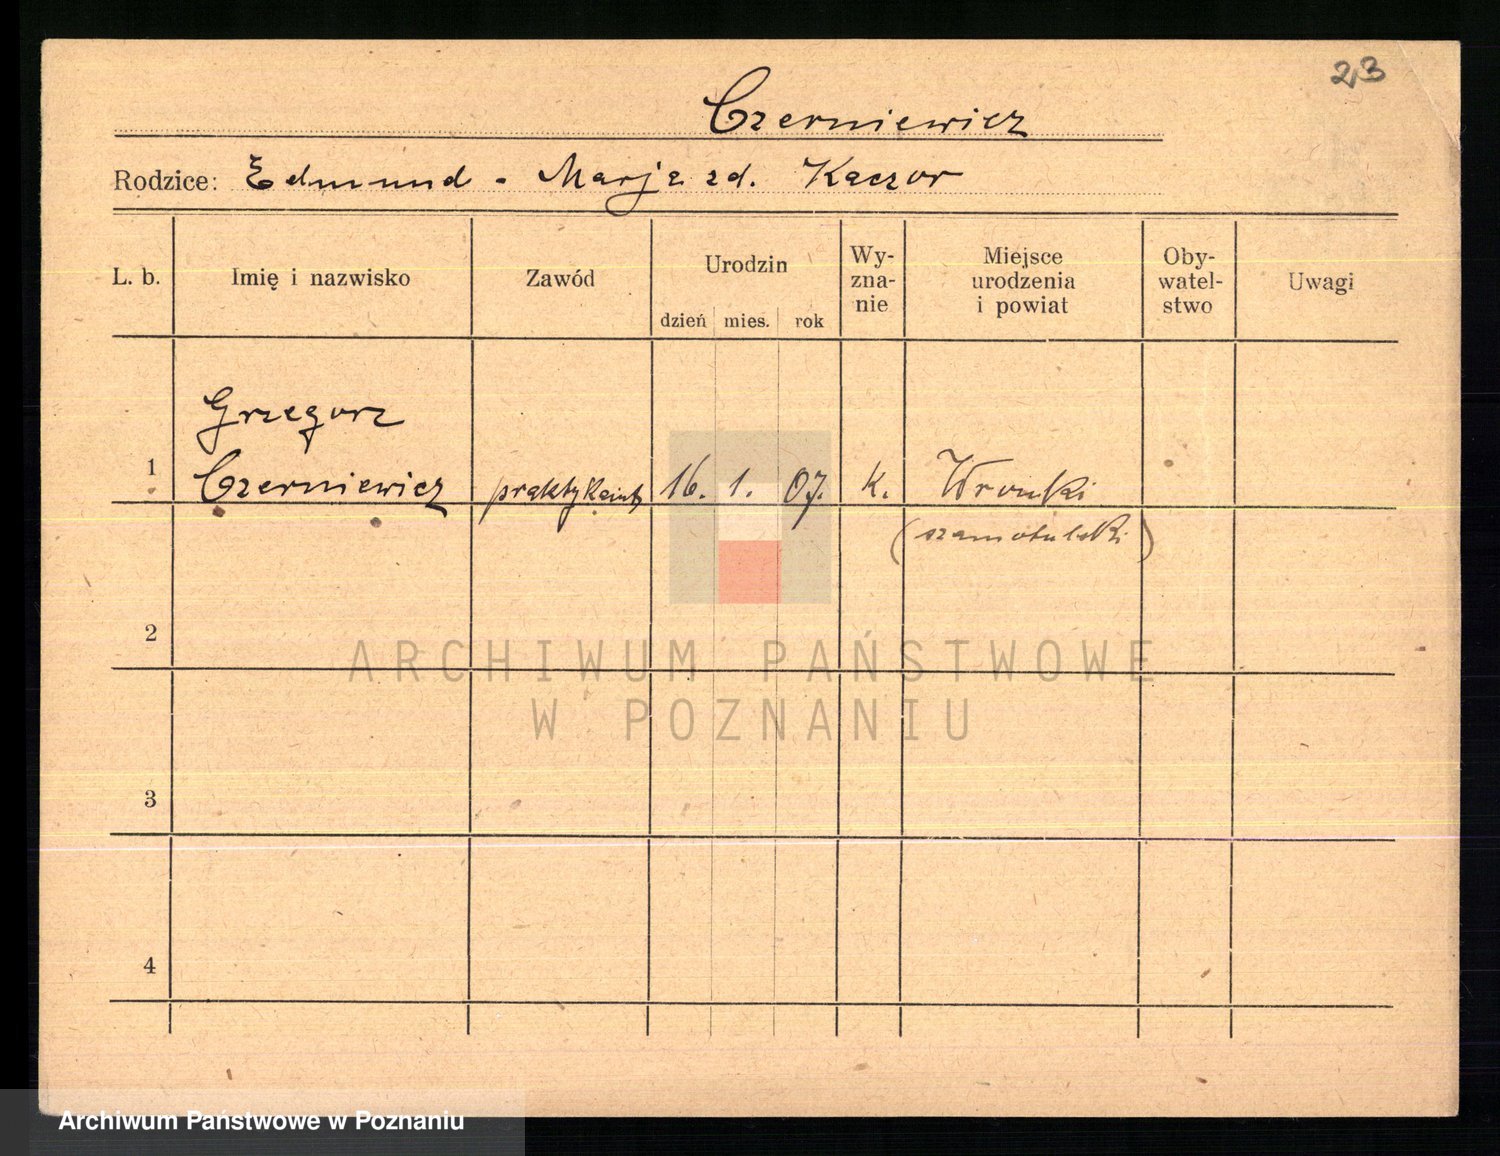 23
Czerniewicz
Rodzice: Edmund - Marja zd. Kaczor
L. b.
Imię i nazwisko
Zawód
Urodzin
dzień mies. rok
Wy-
zna-
nie
Miejsce
urodzenia
i powiat
Oby-
watel-
stwo
Uwagi
Grzegorz
1 Czerniewicz praktykant 16. 1. 07. k. Wronki
(szamotulski)
2
3
4
ARCHIWUM PAŃSTWOWE
W POZNANIU
Archiwum Państwowe w Poznaniu